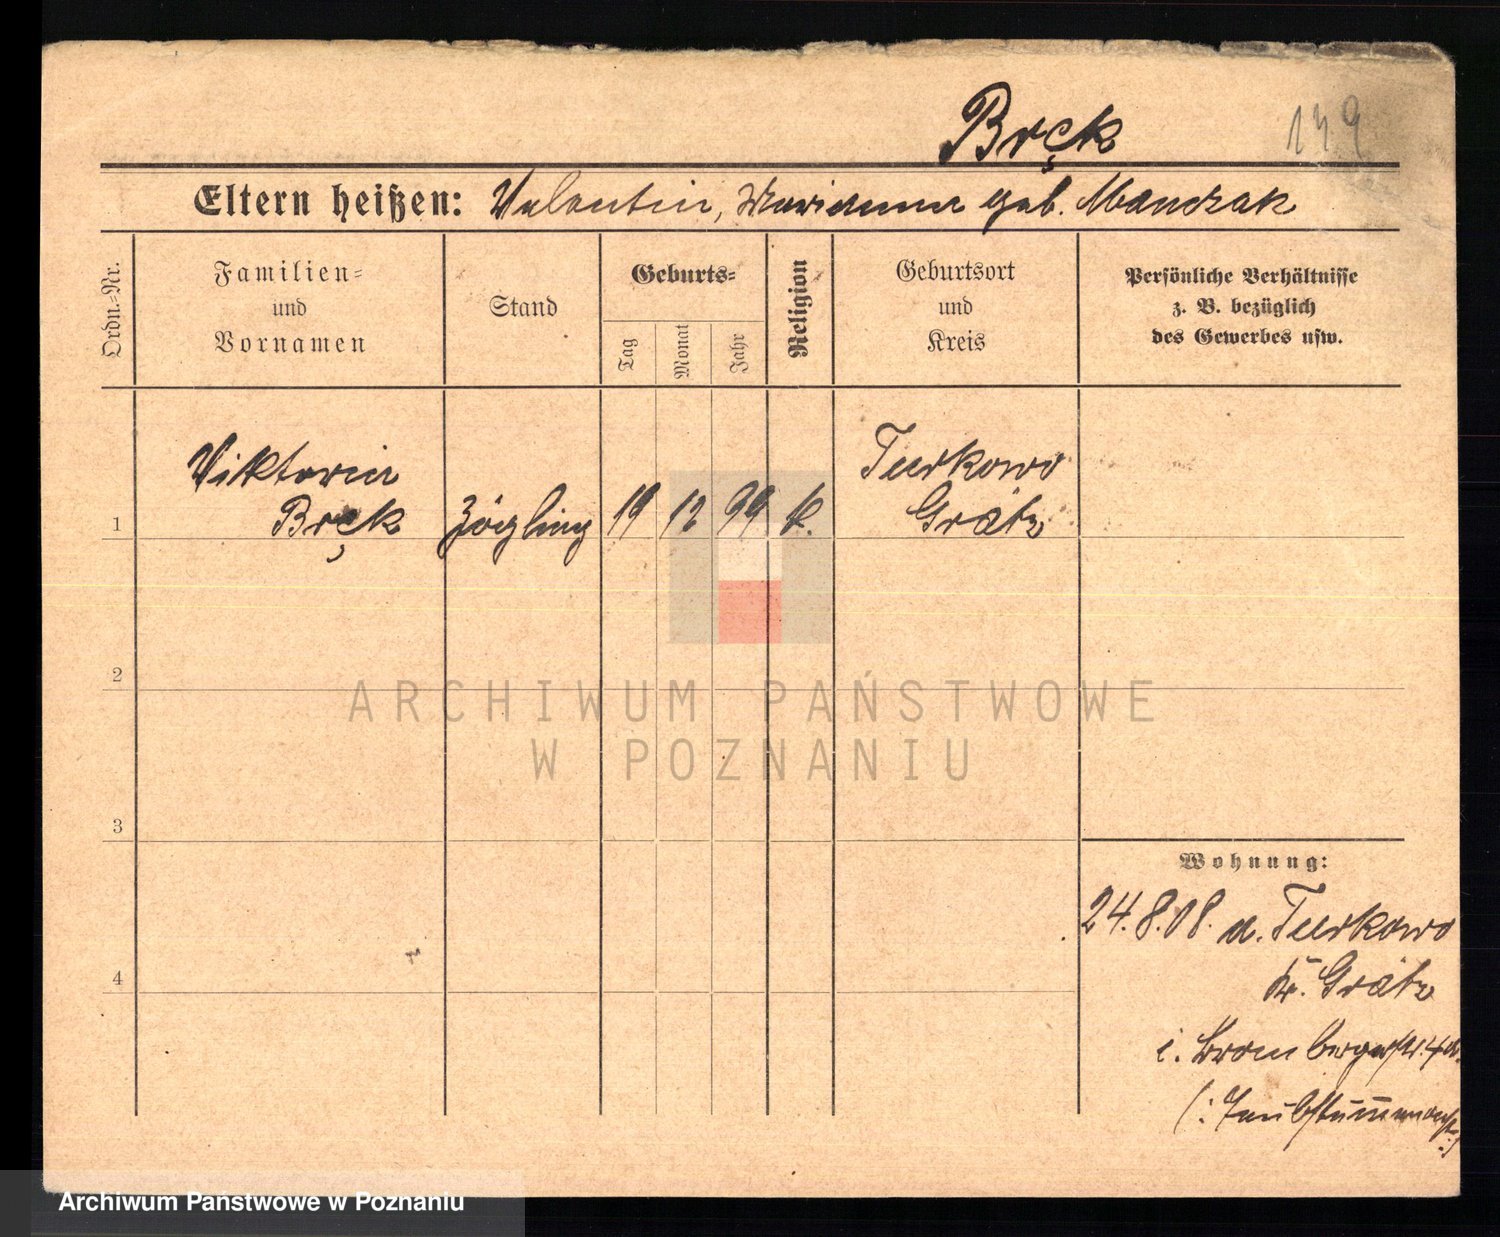 Bręk
149
Eltern heißen: Valentin, Marianna geb. Mandrak
Ordn.=Nr.
Familien=
und
Vornamen
Stand
Geburts=
Tag
Monat
Jahr
Religion
Geburtsort
und
Kreis
Persönliche Verhältnisse
z. B. bezüglich
des Gewerbes usw.
Viktoria
Turkowo
1 Bręk Zögling 19 12 99 k. Grätz
2
ARCHIWUM PAŃSTWOWE
W POZNANIU
3
Wohnung:
24.8.08. a. Turkowo
4
Kr. Grätz
i. Brombergerstr. 4a.
(: Taubstummenanst :)
Archiwum Państwowe w Poznaniu